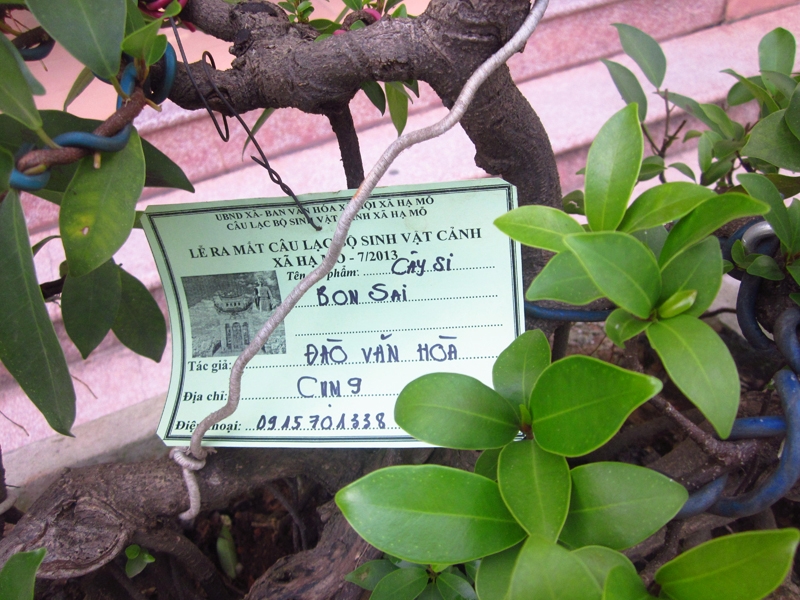 UBND XÃ- BAN VĂN HÓA XÃ HỘI XÃ HẠ MỖ
CÂU LẠC BỘ SINH VẬT CẢNH XÃ HẠ MỖ
LỄ RA MẮT CÂU LẠC BỘ SINH VẬT CẢNH
XÃ HẠ MỖ - 7/2013
Tên tác phẩm: CÂY SI
BON SAI
Tác giả: ĐÀO VĂN HÒA
Địa chỉ: CỤM 9
Điện thoại: 0915701338